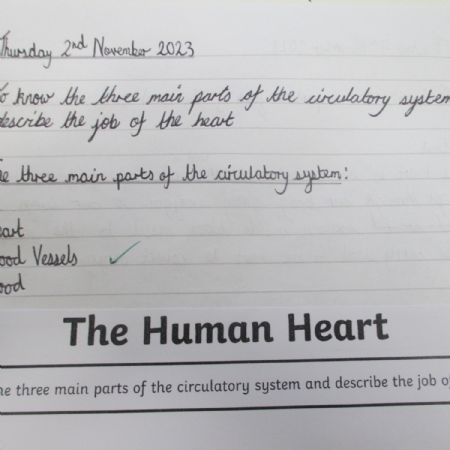 Thursday 2nd November 2023
To know the three main parts of the circulatory system
describe the job of the heart
three main parts of the circulatory system:
Vessels
The Human Heart
three main parts of the circulatory system and describe the job of